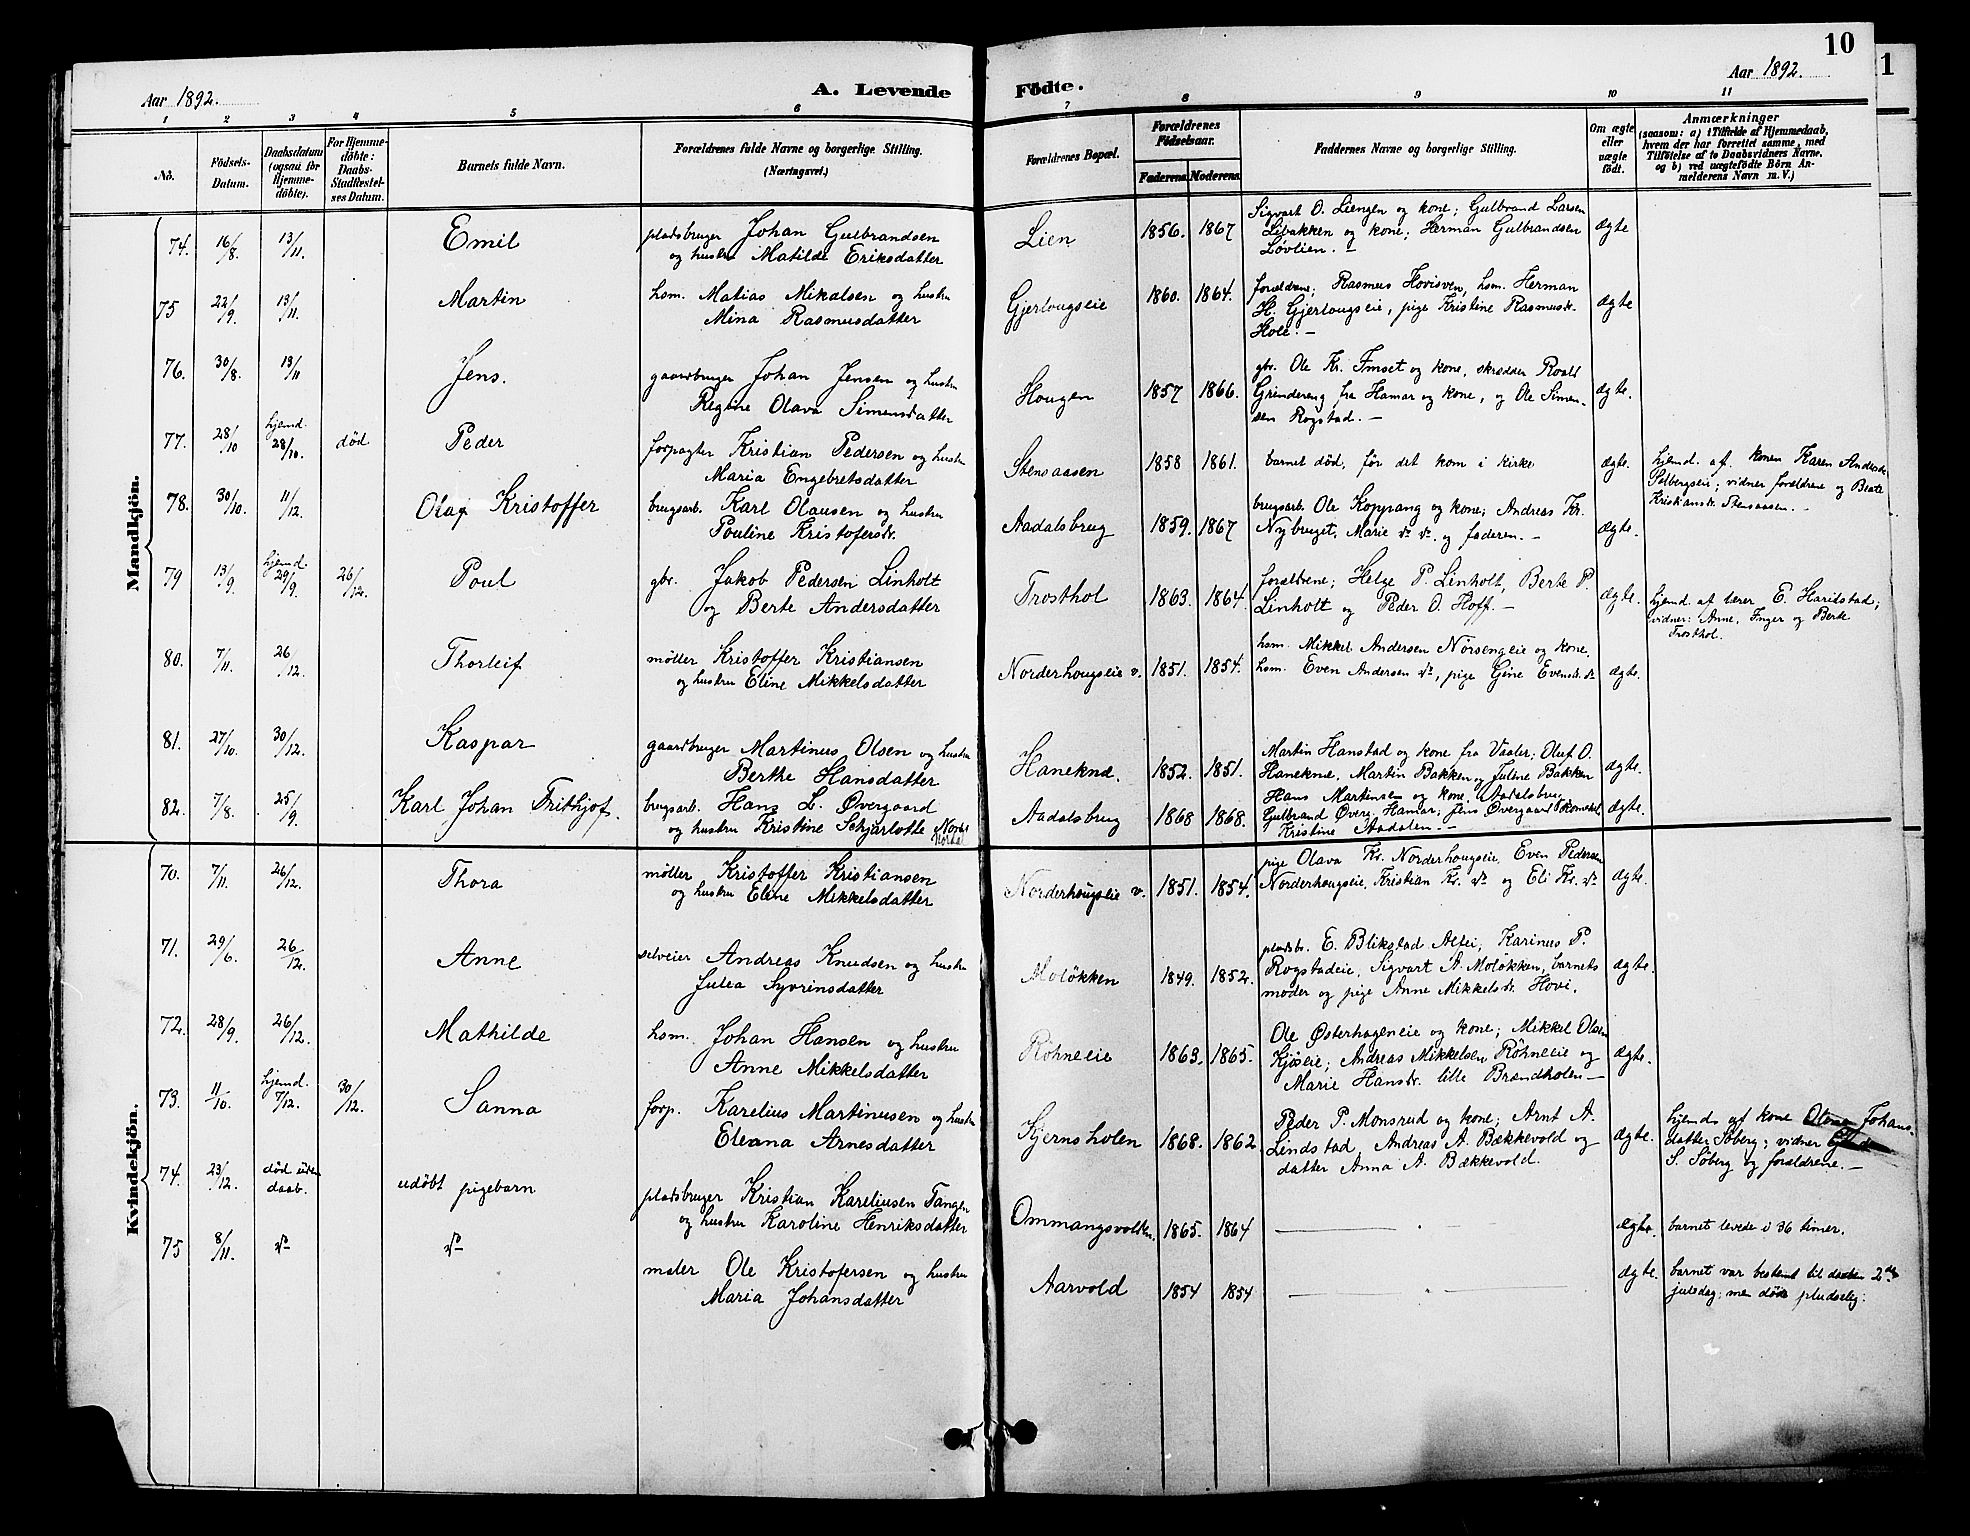 Aar 1892.
A. Levende
Fødte.
Aar 1892.
10
1
1 2 3 4 5 6 7 8 9 10 11
No.
Fødsels-
Datum.
Daabsdatum
(ogsaa for
Hjemme-
døbte).
For Hjemme-
døbte:
Daabs-
Stadfæstel-
ses Datum.
Barnets fulde Navn.
Forældrenes fulde Navne og borgerlige Stilling.
(Næringsvei.)
Forældrenes Bopæl.
Forældrenes
Fødselsaar.
Faderens. Moderens.
Faddernes Navne og borgerlige Stilling.
Om ægte
eller
uægte
født.
Anmærkninger
(saasom: a) i Tilfælde af Hjemmedaab,
hvem der har forrettet samme, med
Tilføielse af to Daabsvidners Navne,
og b) ved uægtefødte Børn An-
melderens Navn m. V.)
Mandkjøn.
74. 16/8. 13/11. Emil pladsbruger Johan Gulbrandsen
og hustru Matilde Eriksdatter
Lien 1856. 1867
Sigvart O. Liengen og kone; Gulbrand Larsen
Libakken og kone; Herman Gulbrandsen
Løvlien. –
ægte
75 22/9. 13/11. Martin hsm. Matias Mikalsen og hustru
Mina Rasmusdatter
Gjerlougseie 1860. 1864.
forældrene; Rasmus Hovisven, hsm. Herman
H. Gjerlougseie, pige Kristine Rasmusdr.
Hole. –
ægte
76. 30/8. 13/11 Jens. gaardbruger Johan Jensen og hustru
Regine Olava Simensdatter
Hougen 1857 1866.
gbr. Ole Kr. Imset og kone, skrædder Roald
Grindereng fra Hamar og kone, og Ole Simen-
sen Rogstad. –
ægte.
77. 28/10 hjemd. 28/10. død Peder forpagter Kristian Pedersen og hustru
Maria Engebretsdatter
Stensaasen 1858 1861. barnet død, før det kom i kirke ægte.
hjemd. af konen Karen Andersdr.
Solbergseie; vidner forældrene og Beate
Kristiansdr. Stensaasen. –
78. 30/10. 11/12. Olaf Kristoffer brugsarb. Karl Olausen og hustru
Pouline Kristofersdr.
Aadalsbrug 1859. 1867
brugsarb. Ole Koppang og kone; Andreas Kr.
Nybruget, Marie do do. og faderen. –
ægte.
79 13/9. hjemd. 29/9. 26/12. Poul gbr. Jakob Pedersen Linholt
og Berte Andersdatter
Trosthol 1863. 1864.
forældrene; Helge P. Linholt, Berte P.
Linholt og Peder O. Hoff. –
ægte.
hjemd. af lærer E. Haridstad;
vidner: Anne, Inger og Berte
Trosthol.
80. 7/11. 26/12. Thorleif møller Kristoffer Kristiansen
og hustru Eline Mikkelsdatter
Norderhougseie v. 1851. 1854.
hsm. Mikkel Andersen Norsengeie og kone,
hsm. Even Andersen do, pige Gine Evensdr. do
ægte.
81. 27/10. 30/12. Kaspar gaardbruger Martinus Olsen og hustru
Berthe Hansdatter
Hanekne. 1852. 1851.
Martin Hanstad og kone fra Vaaler; Oluf O.
Hanekne, Martin Bakken og Juline Bakken
ægte.
82. 7/8. 25/9. Karl Johan Frithjof. brugsarb. Hans L. Øvergaard
og hustru Kristine Schjarlotte
Aadalsbrug 1868 1868.
Hans Martinsen og kone, Aadalsbrug
Gulbrand Øverg. Hamar; Jens Øvergaard
Kristine Aadalen. –
ægte.
Kvindekjøn.
70. 7/11. 26/12. Thora møller Kristoffer Kristiansen
og hustru Eline Mikkelsdatter
Norderhougseie v. 1851. 1854.
pige Olava Kr. Norderhougseie, Even Pedersen
Norderhougseie, Kristian Kr. do og Eli Kr. do
ægte.
71. 29/6. 26/12. Anne selveier Andreas Knudsen og hustru
Julea Syvrinsdatter
Moløkken 1849. 1852.
pladsbr. E. Blikstad Alfei; Karinus P.
Rogstadeie, Sigvart A. Moløkken, barnets
moder og pige Anne Mikkelsdr. Hovi.
ægte.
72. 28/9. 26/12. Mathilde hsm. Johan Hansen og hustru
Anne Mikkelsdatter
Röhneeie 1863. 1865.
Ole Østerhageneie og kone; Mikkel Olsen
Kjøseie; Andreas Mikkelsen Röhneeie og
Marie Hansdr. lille Brændholen –
ægte.
73. 11/10. hjemd. 7/12. 30/12. Sanna forp. Karelius Martinusen og hustru
Eleana Arnesdatter
Kjernsholen 1868. 1862
Peder P. Monsrud og kone; Arnt A.
Lindstad, Andreas A. Bækkevold og
datter Anna A. Bækkevold.
ægte.
hjemd. af kone Johans-
datter Søberg; vidner
S. Søberg og forældrene. –
74. 23/12. død uden daab. udøbt pigebarn pladsbruger Kristian Kareliusen Tangen
og hustru Karoline Henriksdatter
Ommangsvolden. 1865. 1864 ægte. barnet levede i 36 timer.
75 8/11. do do maler Ole Kristofersen og hustru
Maria Johansdatter
Aarvold 1854 1854 ægte.
barnet var bestemt til daaben 2den
juledag; men døde pludselig.